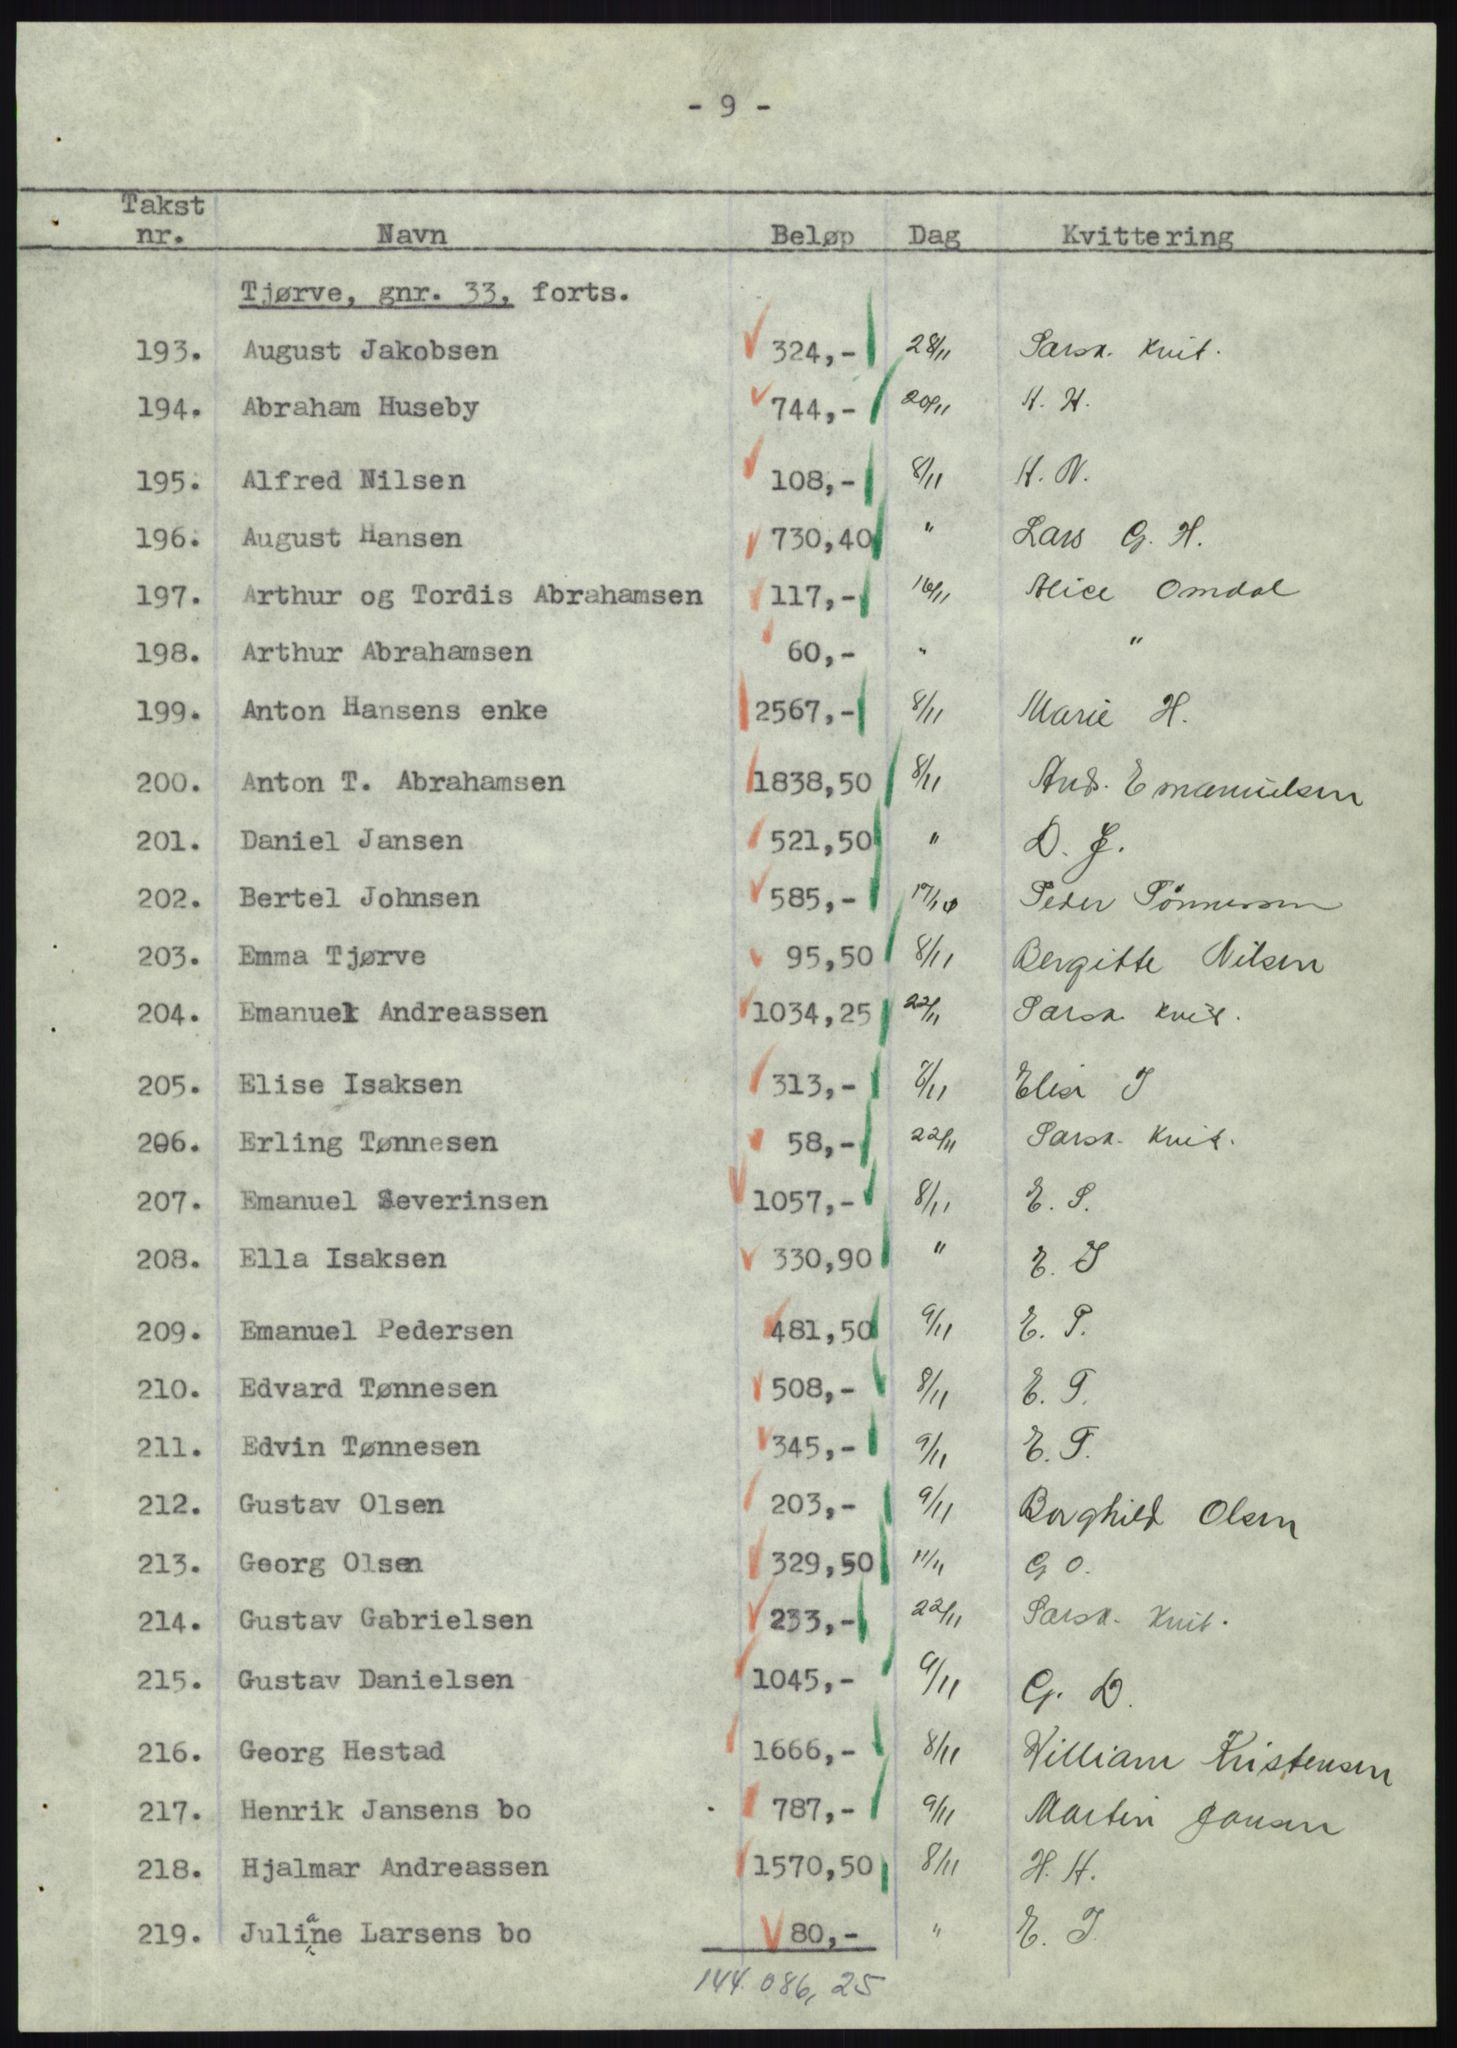 - 9 -
Takst nr. Navn Beløp Dag Kvittering
Tjørve, gnr. 33, forts.
193. August Jakobsen 324,- 28/11 Særsk. kvit.
194. Abraham Huseby 744,- 20/11 A. H.
195. Alfred Nilsen 108,- 8/11 A. N.
196. August Hansen 730,40 " Lars G. H.
197. Arthur og Tordis Abrahamsen 117,- 16/11 Alice Omdal
198. Arthur Abrahamsen 60,- " "
199. Anton Hansens enke 2567,- 8/11 Marie H.
200. Anton T. Abrahamsen 1838,50 8/11 And. Emanuelsen
201. Daniel Jansen 521,50 " D. J.
202. Bertel Johnsen 585,- 17/10 Peder Tønnessen
203. Emma Tjørve 95,50 8/11 Bergitte Nilsen
204. Emanuel Andreassen 1034,25 22/11 Særsk. kvit.
205. Elise Isaksen 313,- 8/11 Elise I
206. Erling Tønnesen 58,- 22/11 Særsk. kvit.
207. Emanuel Severinsen 1057,- 8/11 E. S.
208. Ella Isaksen 330,90 " E. I
209. Emanuel Pedersen 481,50 9/11 E. P.
210. Edvard Tønnesen 508,- 8/11 E. T.
211. Edvin Tønnesen 345,- 9/11 E. T.
212. Gustav Olsen 203,- 9/11 Borghild Olsen
213. Georg Olsen 329,50 11/11 G O.
214. Gustav Gabrielsen 233,- 22/11 Særsk. kvit.
215. Gustav Danielsen 1045,- 9/11 G. D.
216. Georg Hestad 1666,- 8/11 William Kristensen
217. Henrik Jansens bo 787,- 9/11 Martin Jansen
218. Hjalmar Andreassen 1570,50 8/11 H. A.
219. Juliane Larsens bo 80,- " E. I
144.086,25